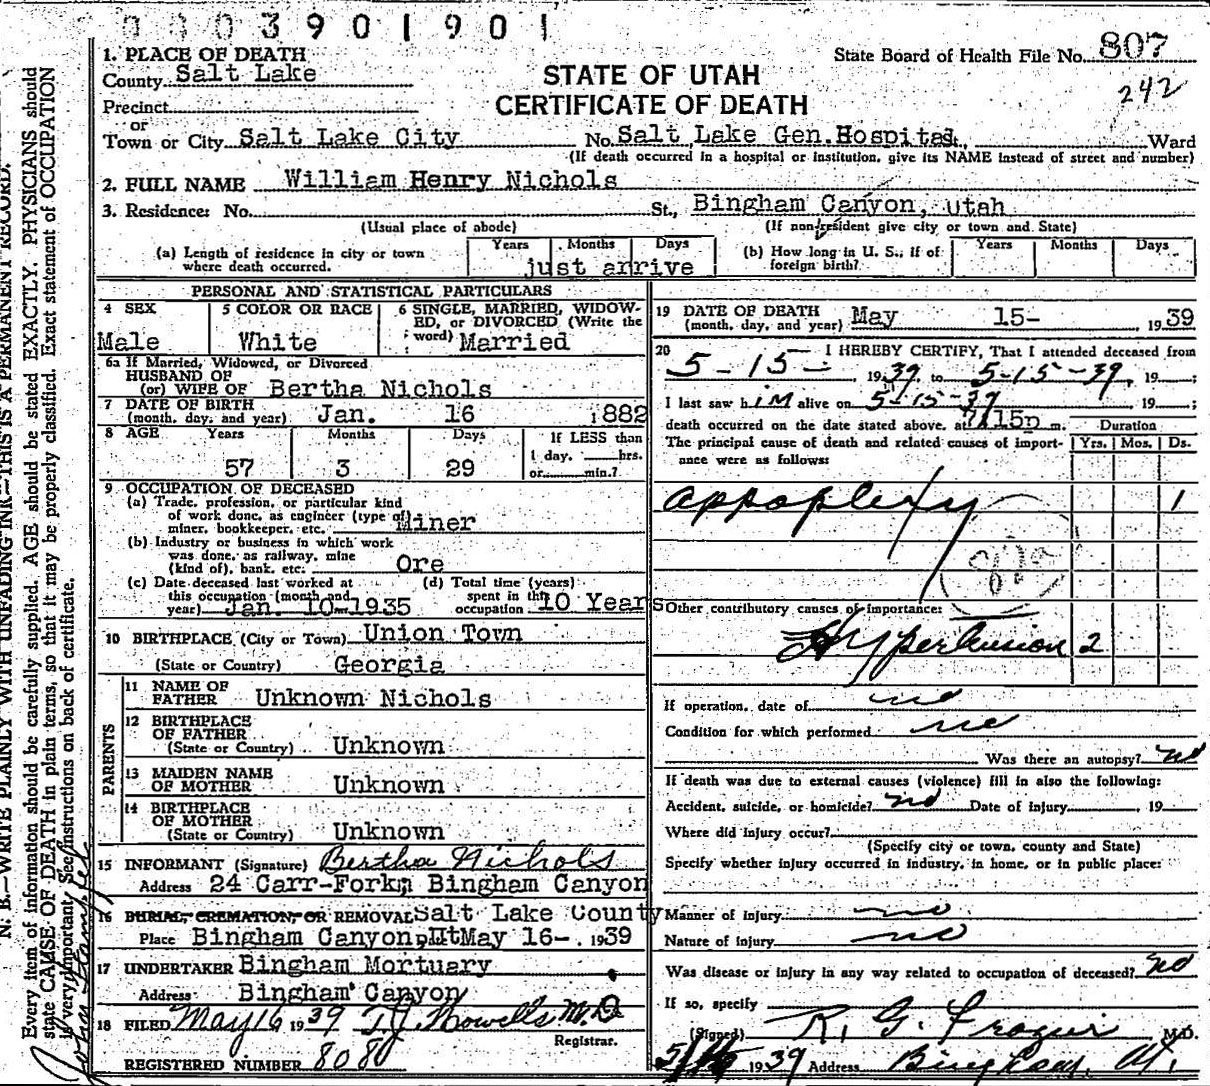 0003901901
1. PLACE OF DEATH
State Board of Health File No. 807
County Salt Lake
STATE OF UTAH
242
Precinct
CERTIFICATE OF DEATH
or
Town or City Salt Lake City No. Salt Lake Gen. Hospital St., Ward
(If death occurred in a hospital or institution, give its NAME instead of street and number)
2. FULL NAME William Henry Nichols
3. Residence: No. St., Bingham Canyon, Utah
(Usual place of abode) (If non-resident give city or town and State)
(a) Length of residence in city or town where death occurred. Years Months Days just arrive
(b) How long in U. S., if of foreign birth? Years Months Days
PERSONAL AND STATISTICAL PARTICULARS
4 SEX Male
5 COLOR OR RACE White
6 SINGLE, MARRIED, WIDOW-
ED, or DIVORCED (Write the
word) Married
6a If Married, Widowed, or Divorced
HUSBAND OF
(or) WIFE OF Bertha Nichols
7 DATE OF BIRTH
(month, day, and year) Jan. 16 1882
8 AGE Years Months Days If LESS than
57 3 29 1 day, hrs.
or min.?
9 OCCUPATION OF DECEASED
(a) Trade, profession, or particular kind
of work done, as engineer (type of)
miner, bookkeeper, etc. Miner
(b) Industry or business in which work
was done, as railway, mine
(kind of), bank, etc. Ore
(c) Date deceased last worked at
this occupation (month and
year) Jan. 10-1935
(d) Total time (years)
spent in this
occupation 10 Years
10 BIRTHPLACE (City or Town) Union Town
(State or Country) Georgia
PARENTS
11 NAME OF
FATHER Unknown Nichols
12 BIRTHPLACE
OF FATHER
(State or Country) Unknown
13 MAIDEN NAME
OF MOTHER Unknown
14 BIRTHPLACE
OF MOTHER
(State or Country) Unknown
15 INFORMANT (Signature) Bertha Nichols
Address 24 Carr-Fork, Bingham Canyon
16 BURIAL, CREMATION, OR REMOVAL Salt Lake County
Place Bingham Canyon, Ut May 16-. 1939
17 UNDERTAKER Bingham Mortuary
Address Bingham Canyon
18 FILED May 16 1939 T. J. Howells M.D.
Registrar.
REGISTERED NUMBER 8080
19 DATE OF DEATH
(month, day, and year) May 15- , 1939
20 I HEREBY CERTIFY, That I attended deceased from
5-15- 1939, to 5-15-39, 19 ;
I last saw him alive on 5-15-39 , 19 ;
death occurred on the date stated above, at 15p m. Duration
The principal cause of death and related causes of import-
ance were as follows: Yrs. Mos. Ds.
appoplexy 1
Other contributory causes of importance:
Hypertension 2
If operation, date of no
Condition for which performed no
Was there an autopsy? no
If death was due to external causes (violence) fill in also the following:
Accident, suicide, or homicide? no Date of injury , 19
Where did injury occur?
(Specify city or town, county and State)
Specify whether injury occurred in industry, in home, or in public place:
Manner of injury no
Nature of injury no
Was disease or injury in any way related to occupation of deceased? no
If so, specify
(Signed) R. G. Frazier M.D.
1939 Address Bingham, Ut.
N. B.—WRITE PLAINLY WITH UNFADING INK—THIS IS A PERMANENT RECORD.
Every item of information should be carefully supplied. AGE should be stated EXACTLY. PHYSICIANS should
state CAUSE OF DEATH in plain terms, so that it may be properly classified. Exact statement of OCCUPATION
is very important. See instructions on back of certificate.